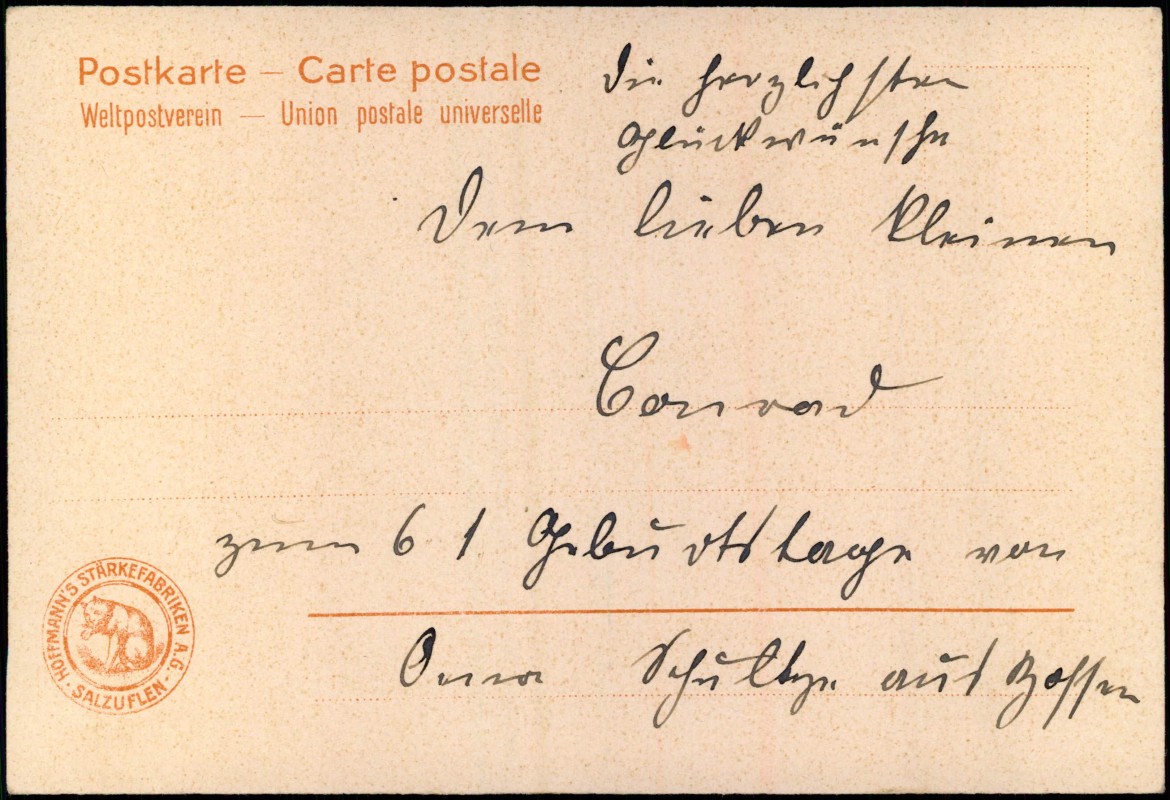 Postkarte — Carte postale
Weltpostverein — Union postale universelle
Die herzlichsten
Glückwünsche
Dem lieben kleinen
Conrad
zum 6 t Geburtstage von
Oma Schultze aus Zossen
HOFFMANN'S STÄRKEFABRIKEN A.G.
SALZUFLEN